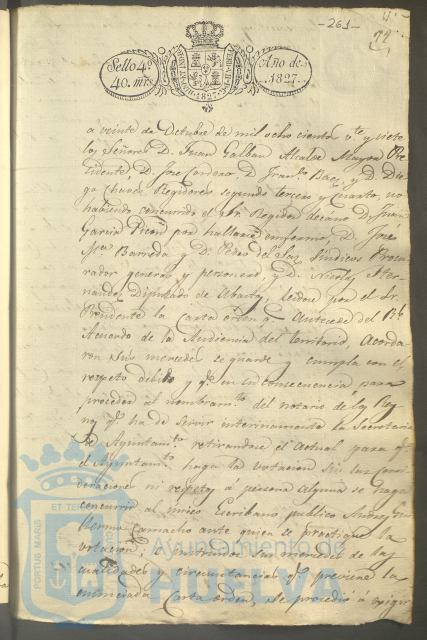 - 261 -
Sello 4º
40. mrs.
Año de
1827.
a veinte de Octubre de mil ocho cientos vte y siete
los Señores D. Juan Galban Alcalde Mayor Pre
sidente, D. José Cordero D. Franco Baez y D. Die
go Chaves Regidores segundo tercero y cuarto, no
habiendo concurrido el Regidor decano D. Juan
Garcia por hallarse enfermo, D. José
Mª Barreda y D. Pedro del Saz Sindicos Procu
rador general y personero, y D. Nicolas Her
nandez Diputado de Abasto, leidose por el Sr
Presidente la carta orden q. Antecede del Rl
Acuerdo de la Audiencia del territorio, Acorda
ron sus mercedes se guarde y cumpla con el
respeto debido y q. en su consecuencia para
proceder al nombramto del notario de los Rey
nos q. ha de servir interinamente la Secretaria
de Ayuntamto retirandose el Actual para q.
el Ayuntamto haga la votacion sin la consi
deracion ni respeto á persona alguna se haga
concurrir al unico Escribano publico
Camacho ante quien se practique la
votacion, é instruidos sus mercedes de las
cualidades y circunstancias q. previene la
enunciada Carta orden, se procedió á
PORTUS MARIS ET TER
Ayuntamiento de
HUELVA